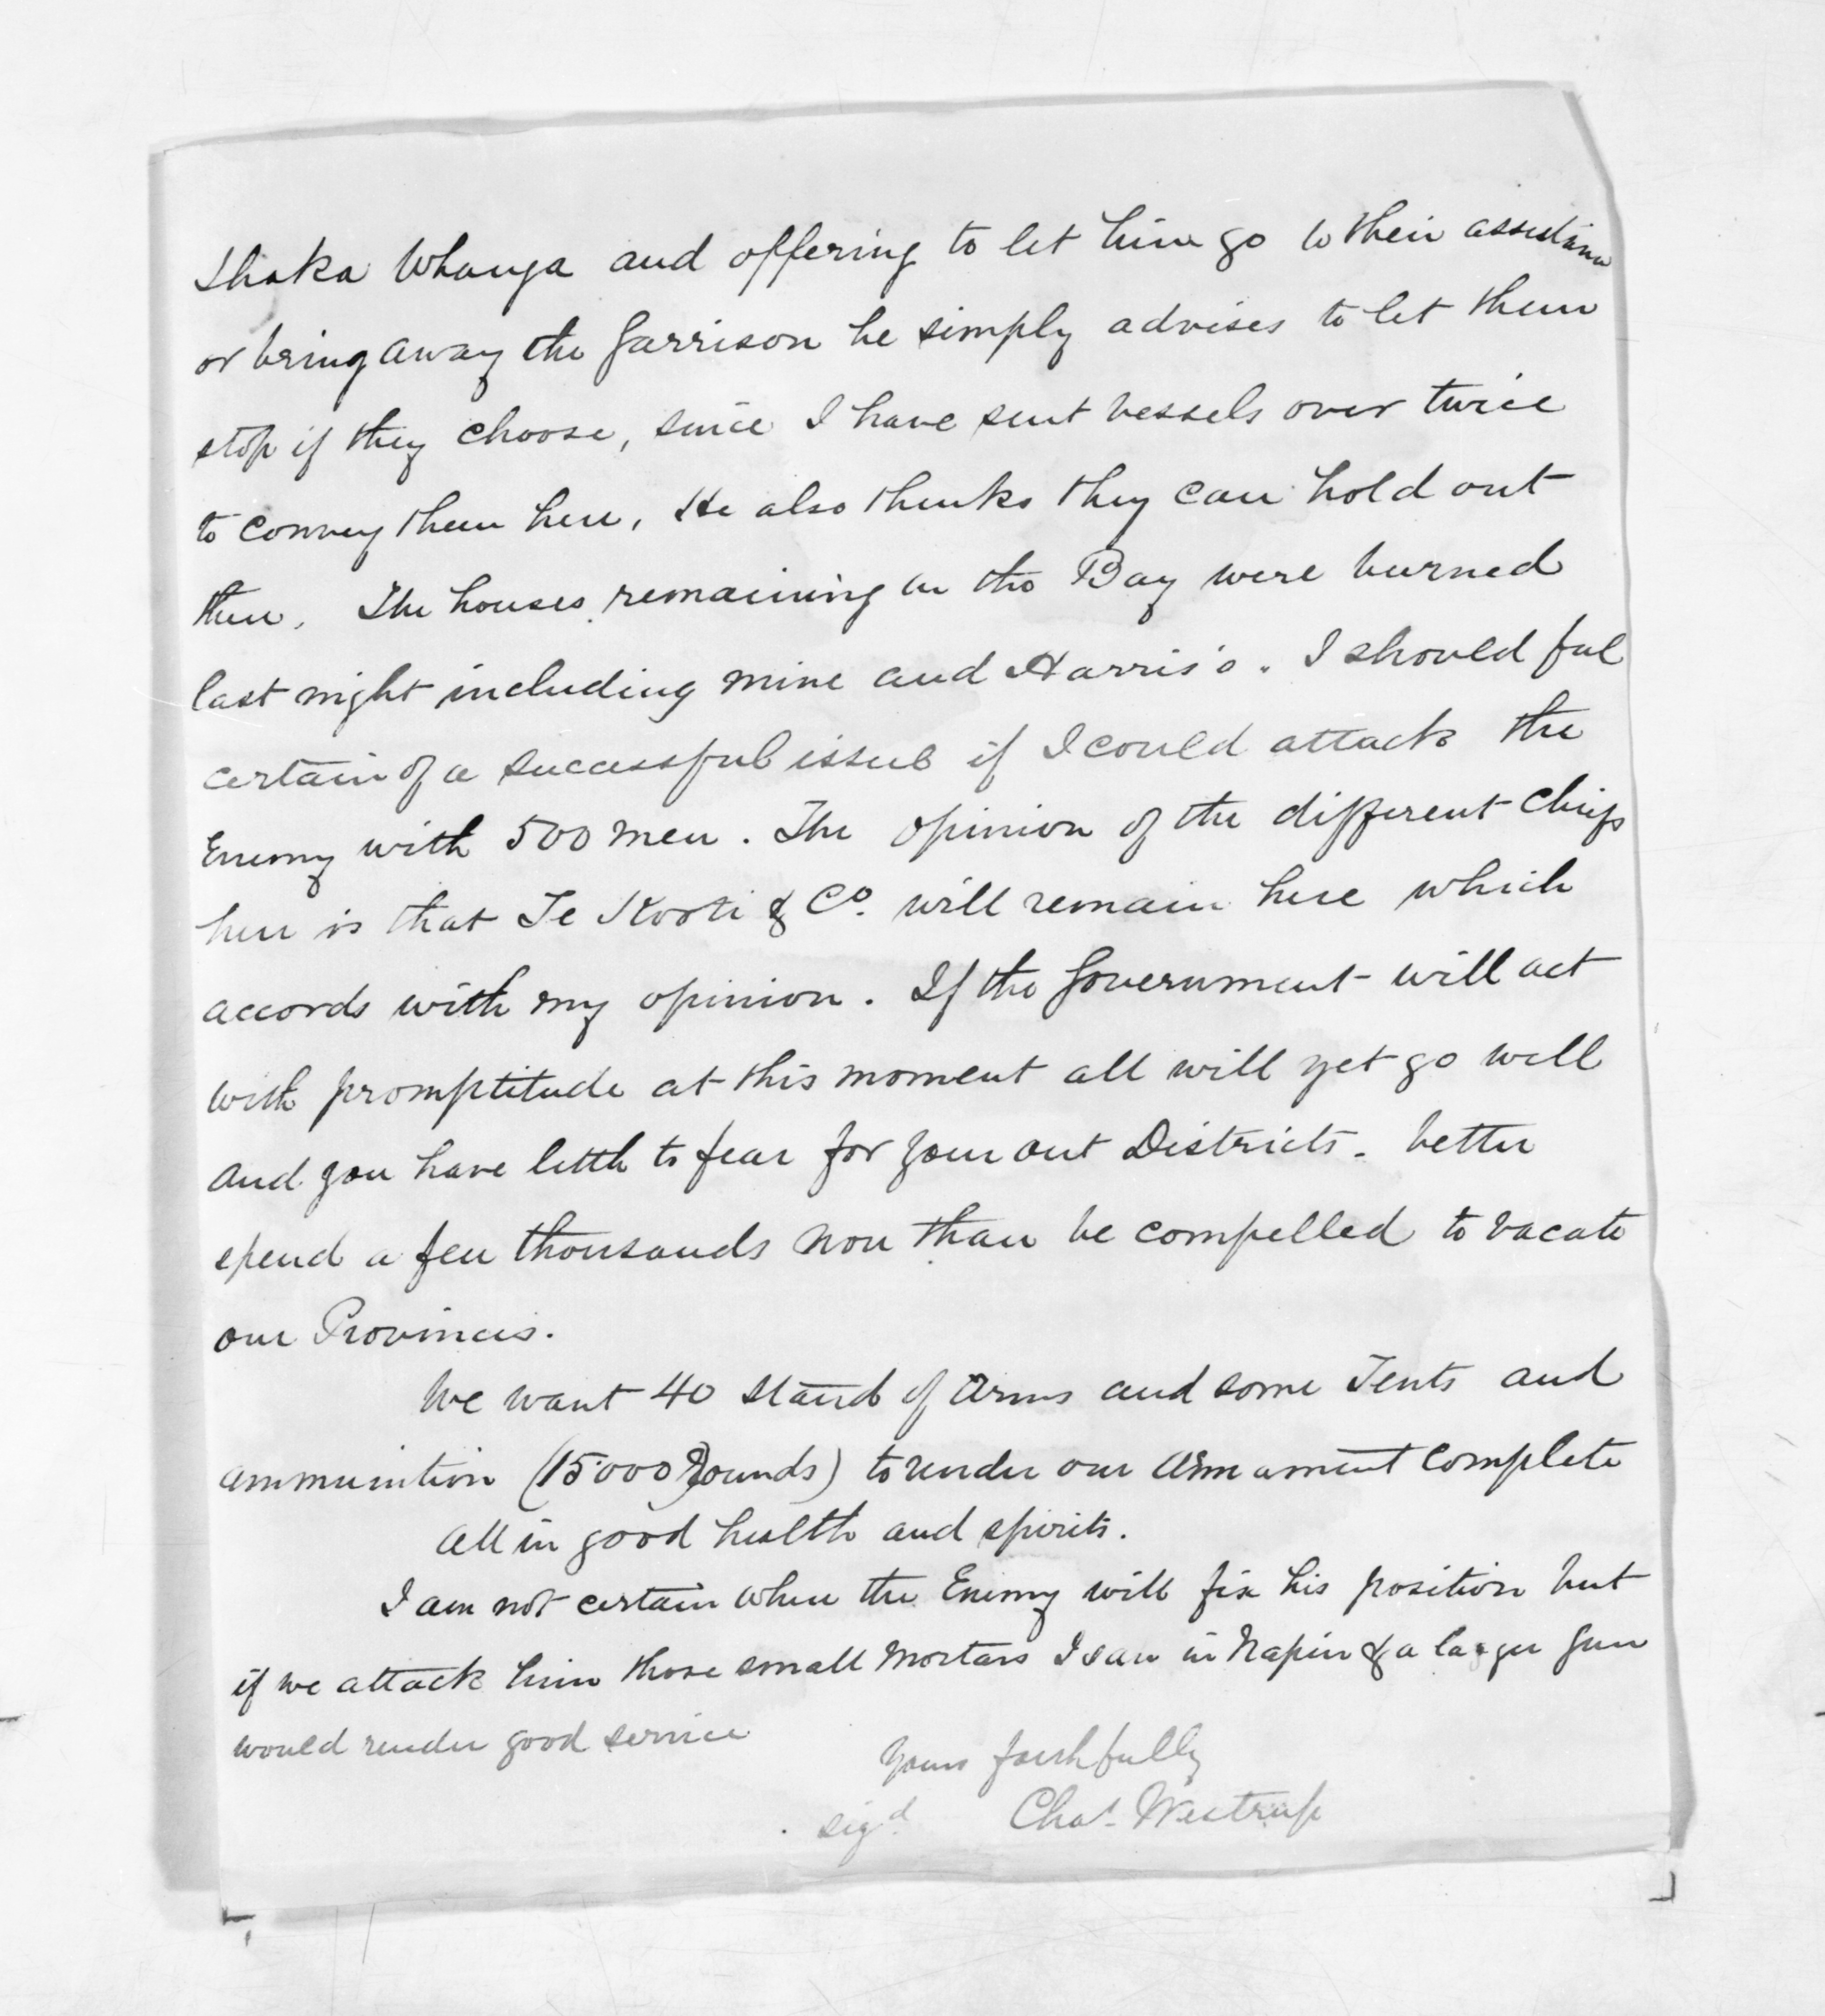 Ihaka Whanga and offering to let him go to their assistance
or bring away the Garrison he simply advises to let them
stop if they choose, since I have sent vessels over twice
to convey them here, He also thinks they can hold out
there. The houses remaining in the Bay were burned
last night including mine and Harris's. I should feel
certain of a successful issue if I could attack the
Enemy with 500 men. The opinion of the different Chiefs
here is that Te Kooti & Co. will remain here which
accords with my opinion. If the Government will act
with promptitude at this moment all will yet go well
and you have little to fear for your out Districts. better
spend a few thousands now than be compelled to vacate
our Provinces.
We want 40 stand of Arms and some Tents and
ammunition (15000 Rounds) to render our Armament complete
All in good health and spirits.
I am not certain where the Enemy will fix his position but
if we attack him those small Mortars I saw in Napier & a larger Gun
would render good service
Yours faithfully
sigd Chas. Westrup